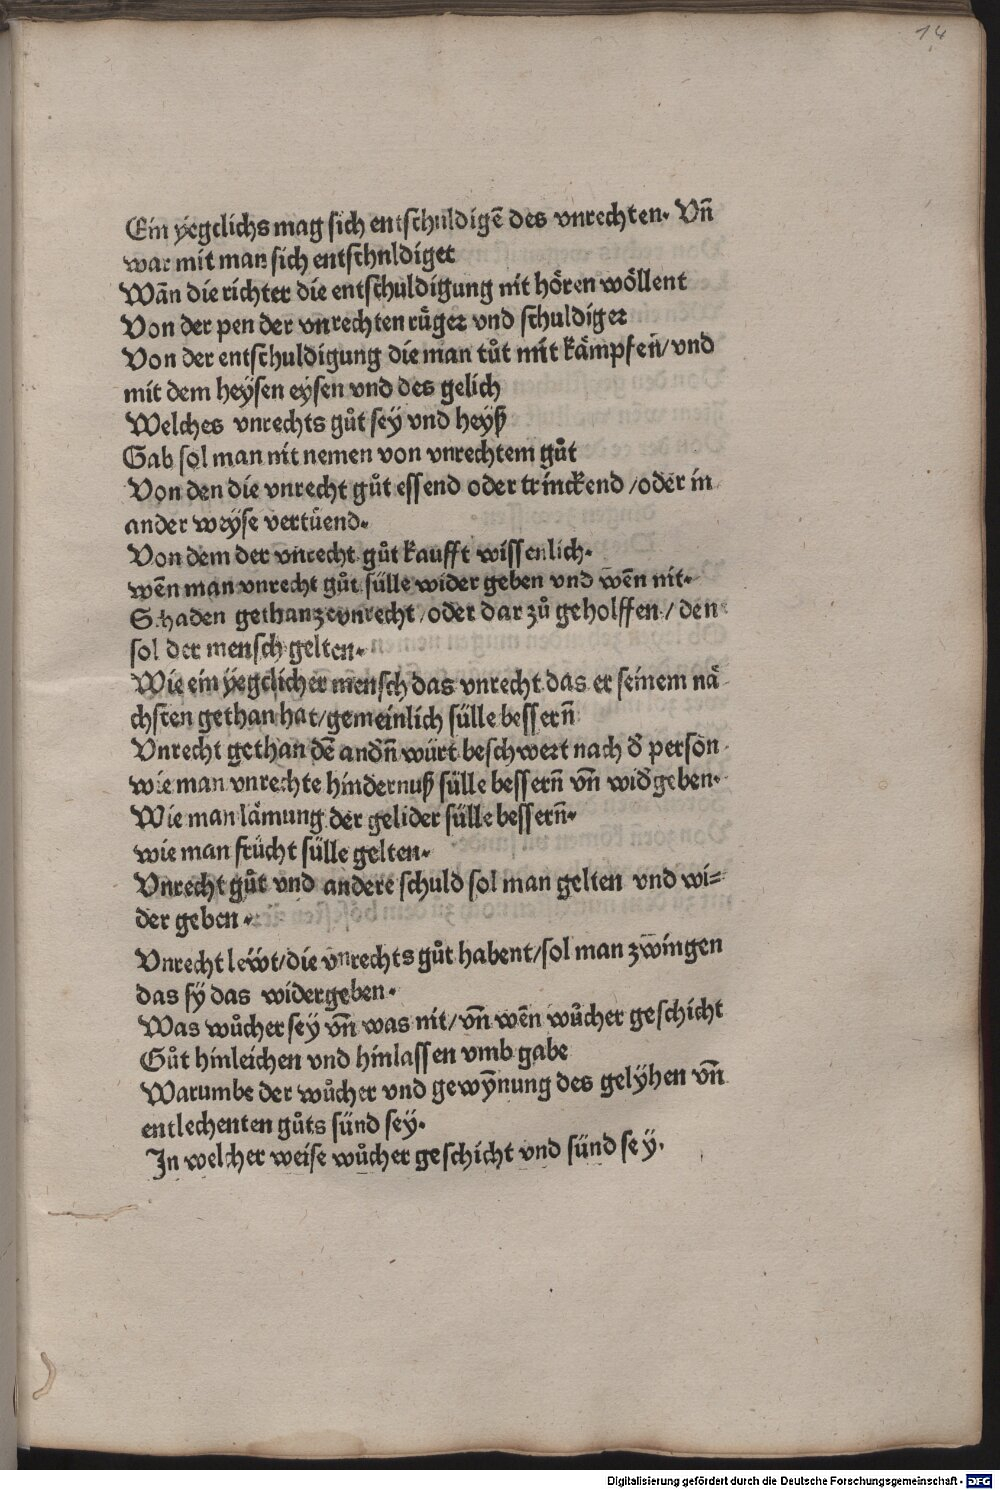 14
Ein yegclichs mag sich entschuldigē des vnrechten. Vn̄
war mit man sich entschuldiget
Wān die richter die entschuldigung nit hören wöllent
Von der pen der vnrechten rüger vnd schuldiger
Von der entschuldigung die man tůt mit kämpfen̄/vnd
mit dem heysen eysen vnd des gelich
Welches vnrechts gůt sey vnd heyß
Gab sol man nit nemen von vnrechtem gůt
Von den die vnrecht gůt essend oder trinckend/oder in
ander weyse vertüend.
Von dem der vnrecht gůt kaufft wissenlich.
wēn man vnrecht gůt sülle wider geben vnd wēn nit.
Schaden gethan ze vnrecht/oder dar zů geholffen/den
sol der mensch gelten.
Wie ein yegclicher mensch das vnrecht das er seinem nä
chsten gethan hat/gemeinlich sülle bessern̄
Vnrecht gethan dē andn̄ würt beschwert nach d̄ person
wie man vnrechte hindernuß sülle bessern̄ vn̄ wid̄geben.
Wie man lämung der gelider sülle bessern̄.
wie man frücht sülle gelten.
Vnrecht gůt vnd andere schuld sol man gelten vnd wi=
der geben.
Vnrecht leẅt/die vnrechts gůt habent/sol man zwingen
das sy das widergeben.
Was wůcher sey vn̄ was nit/vn̄ wēn wůcher geschicht
Gůt hinleichen vnd hinlassen vmb gabe
Warumbe der wůcher vnd gewȳnung des gelyhen vn̄
entlechenten gůts sünd sey.
In welcher weise wůcher geschicht vnd sünd sey.
Digitalisierung gefördert durch die Deutsche Forschungsgemeinschaft - DFG